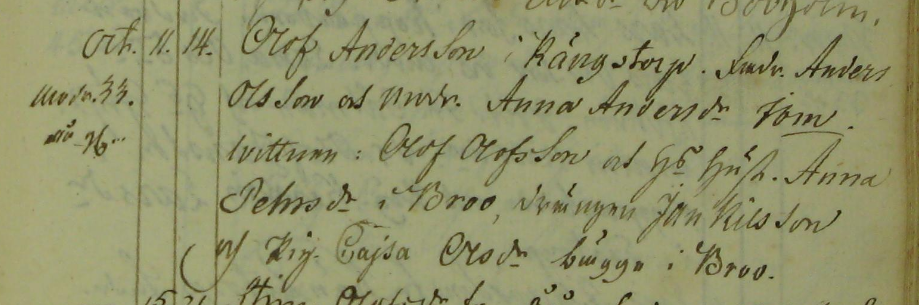 Booholm.
Oct. 11. 14. Olof Andersson i Rångstorp. Fadr. Anders
Modr. 33. Olsson och Modr. Anna Andersdr
Vittnen: Olof Olofsson och Hs Hust. Anna
Pehrsdr i Broo, drängen Jan Nilsson
och Pig. Cajsa Olsdr bägge i Broo.